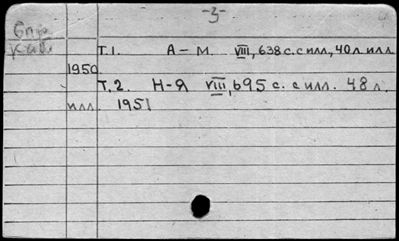 -3-
Спр
Каб
Т.1. А – М. VIII, 638 с. с илл., 40 л. илл.
1950
Т.2. Н-Я VIII, 695 с. с илл. 48 л.
илл. 1951